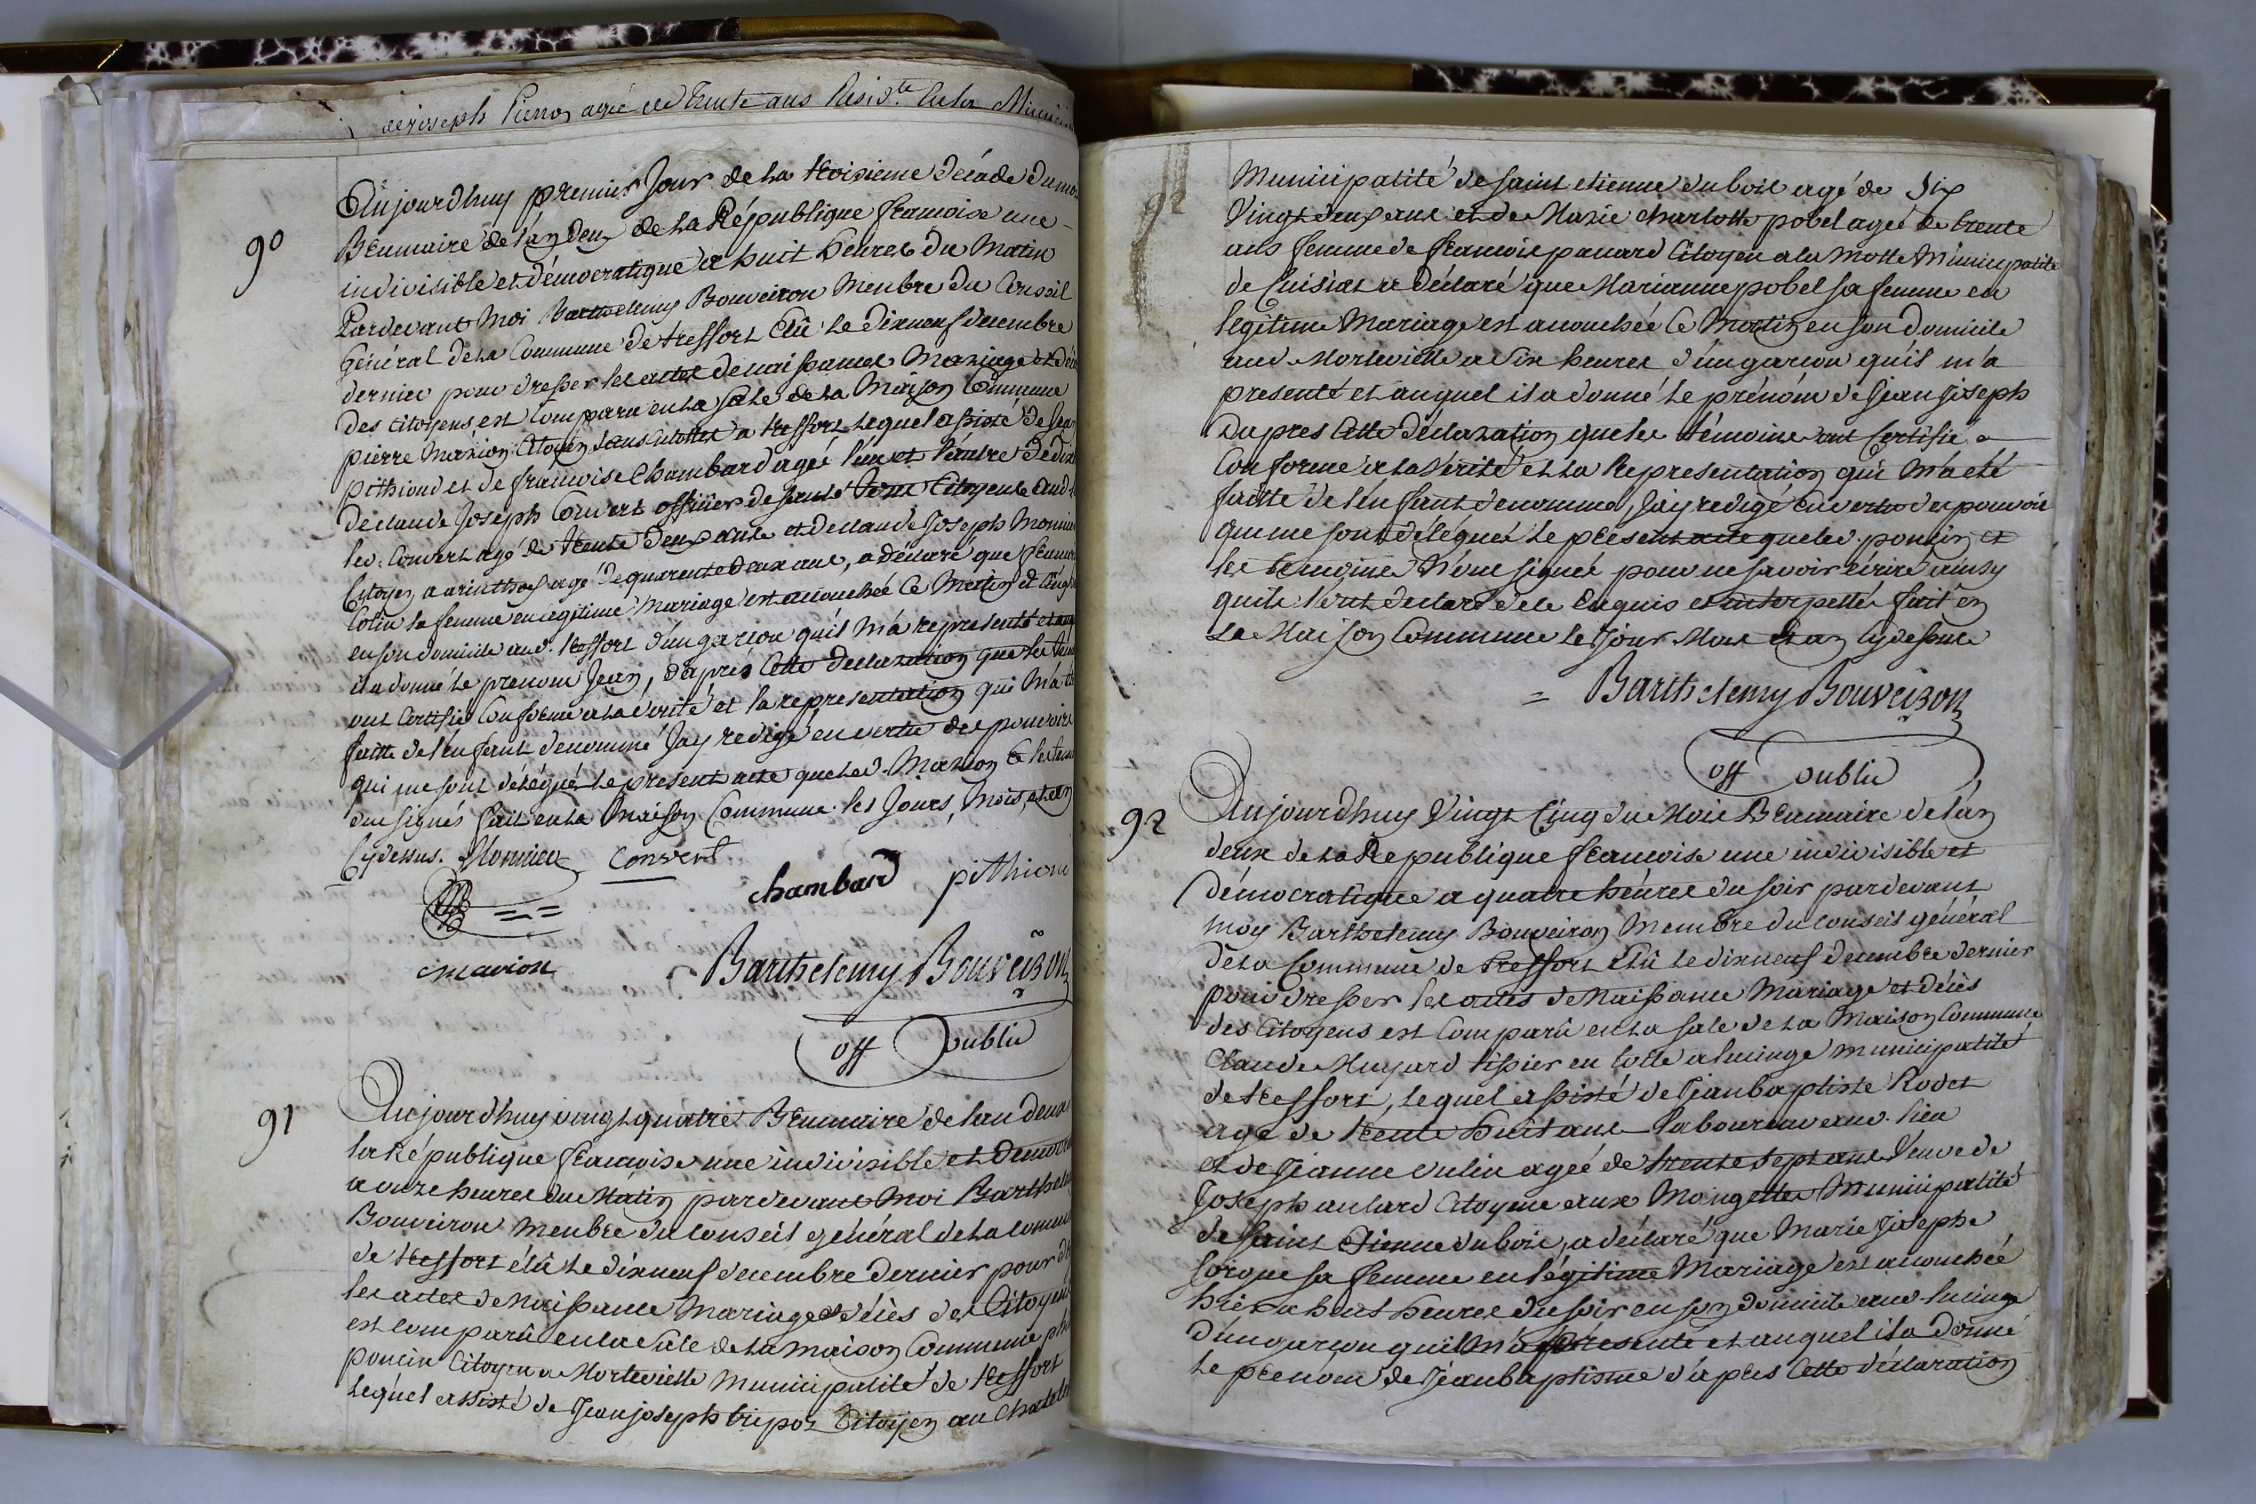 de joseph Pieron agé de trente ans Resid.te en la
90
Aujourdhuy premier Jour de la troisieme décade du
Brumaire de l'an deux de la République francoise une
indivisible et démocratique a huit heures du Matin
Pardevant Moi Barthelemy Bouveiron Menbre du Conseil
Général de la Commune de treffort Elû le dixneuf decembre
dernier pour dresser les actes de naissances Mariage et
des citoyens est Comparu en la sale de la Maison Commune
pierre Marion Citoyen sans culottes a treffort lequel assisté de
pithioud et de francoise Chambard agée l'un et l'autre de
de claude Joseph Convert officier de santé tous Citoyens
led. Convert agé de trente deux ans et de claude Joseph Monnier
Citoyen a arinthod agé de quarente deux ans, a déclaré que
Colin sa femme en legitime Mariage est accouchée Ce Matin
en son domicile aud. treffort d'un garcon qu'il m'a représenté et
il a donné le prenom Jean, d'après Cette declaration que les
ont Certifié Conforme a la vérité et la représentation qui M'a
faitte de l'enfant denommé Jay redigé en vertu des pouvoirs
qui me sont délégués le present acte que led. Marion & les
ont signés fait en la Maison Commune les Jours, mois, et an
Cydessus. Monnier Convert
chambard pithiou
Marion Barthelemy Bouveiron
off public
91
Aujourdhuy vingt quatre Brumaire de l'an deux
la République francoise une indivisible et
a onze heures du Matin pardevant Moi
Bouveiron Menbre du Conseil général de la
de treffort élû le dixneuf decembre dernier pour
les actes de Naissance Mariage et décès des Citoyens
est comparû en la Sale de la maison Commune
poncin Citoyen a Morteville Municipalité de treffort
lequel assisté de Jean joseph tripoz Citoyen au
Municipalité de saint etienne du bois agé de Six
Vingt deux ans et de Marie charlotte pobel agée de trente
ans femme de francois panard Citoyen a la Motte Municipalité
de Cuisiat a déclaré que Marianne pobel sa femme en
legitime Mariage est accouchée Ce Matin en son domicile
aud. Morteville a Six heures d'un garcon qu'il m'a
presenté et auquel il a donné le prénom de Jean Joseph
Dapres Cette déclaration que les témoins ont Certifié
Conforme a la Vérité et la Representation qui M'a eté
faitte de l'enfant denommé, Jay redigé en vertu des pouvoirs
qui me sont délégués le présent acte que led. poncin et
les temoins N'ont signés pour ne savoir écrire ainsy
quils l'ont declaré de ce Enquis et interpellés fait en
la Maison Commune le Jour Mois et an Cydessus
= Barthelemy Bouveiron
off public
92
Aujourdhuy Vingt Cinq du Mois Brumaire de l'an
deux de la République francoise une indivisible et
démocratique a quatre heures du soir pardevant
moy Barthelemy Bouveiron Membre du conseil général
de la Commune de treffort élû le dixneuf decembre dernier
pour dresser les actes de Naissance Mariage et décès
des Citoyens est Comparû en la sale de la Maison Commune
Claude Muyard tissier en toile a lucinge municipalité
de treffort, lequel assisté de Jean baptiste Rodet
agé de trente huit ans laboureur aud. lieu
et de Jeanne Vulin agée de trente sept ans Veuve de
Joseph aulard Citoyenne aux Mangettes Municipalité
de saint Etienne du bois, a déclaré que Marie Josephe
sa femme en légitime Mariage est accouchée
hier a huit heures du soir en son domicile aud. lucinge
d'un garcon qu'il M'a présenté et auquel il a donné
le prénom de Jean baptisme d'après Cette déclaration